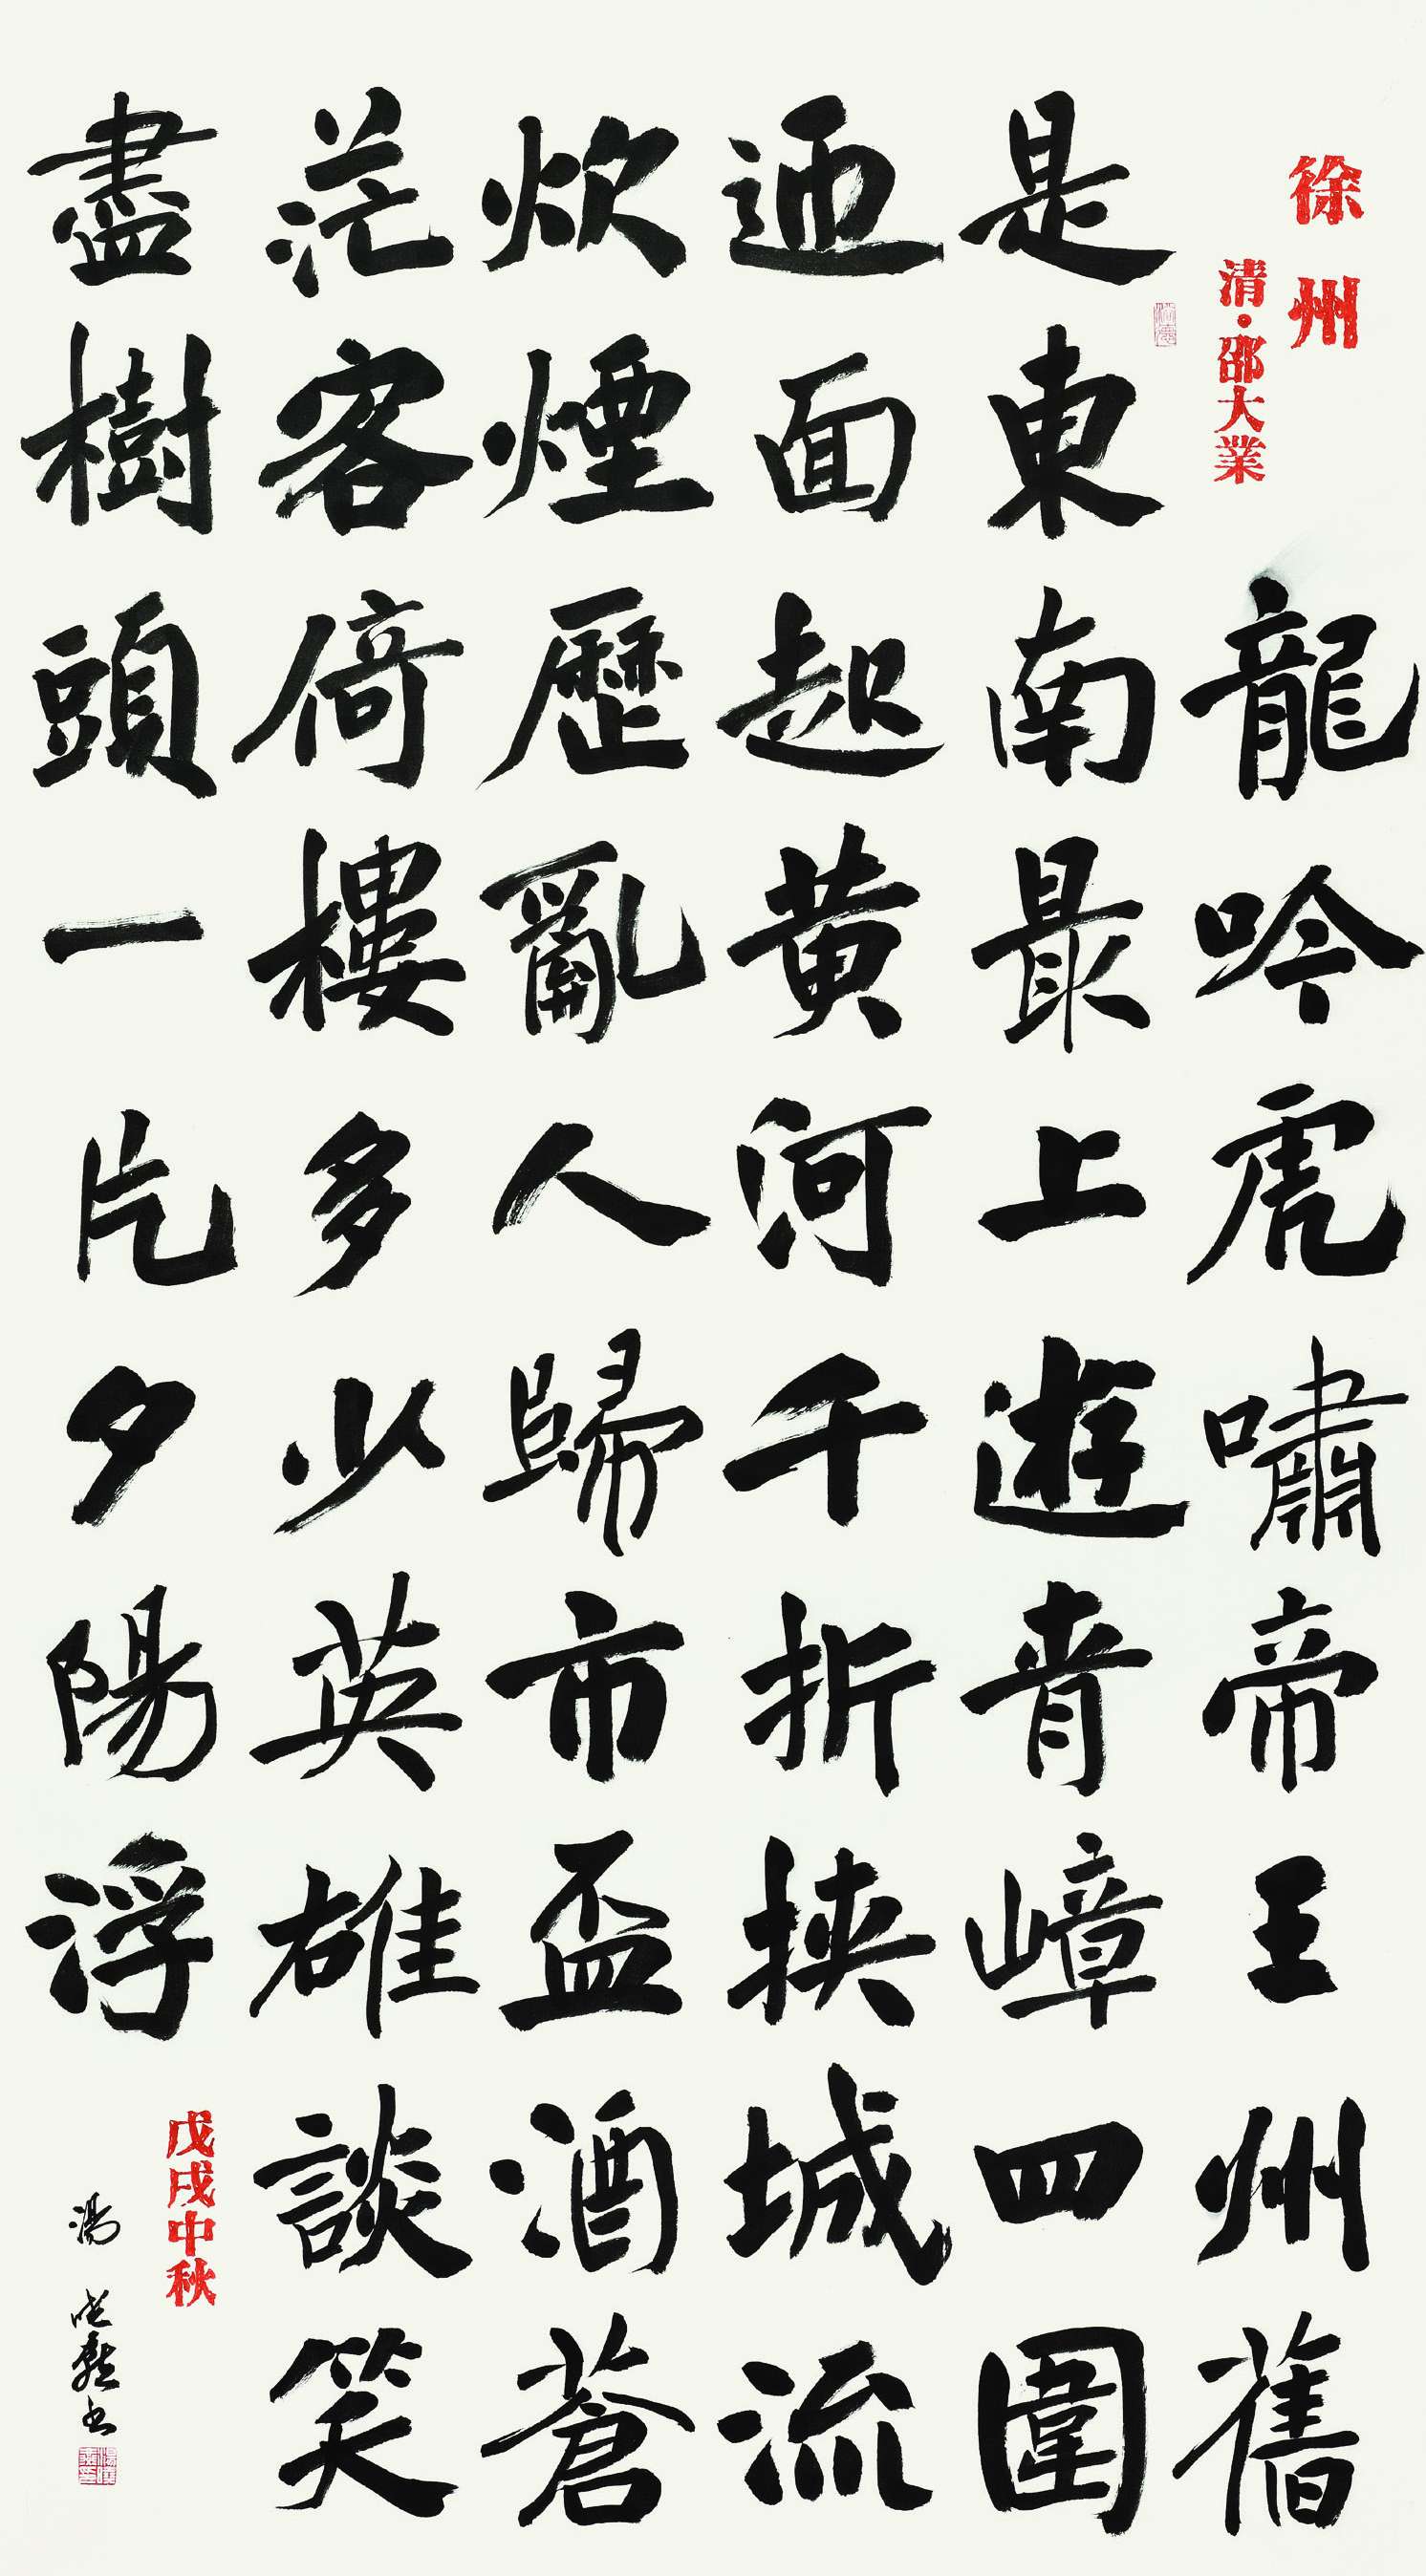 徐州
清·邵大業
龍吟虎嘯帝王州舊
是東南最上遊青嶂四圍
迊面起黄河千折挾城流
炊煙歷亂人歸市盃酒蒼
茫客倚樓多少英雄談笑
盡樹頭一片夕陽浮
戊戌中秋
湯
書